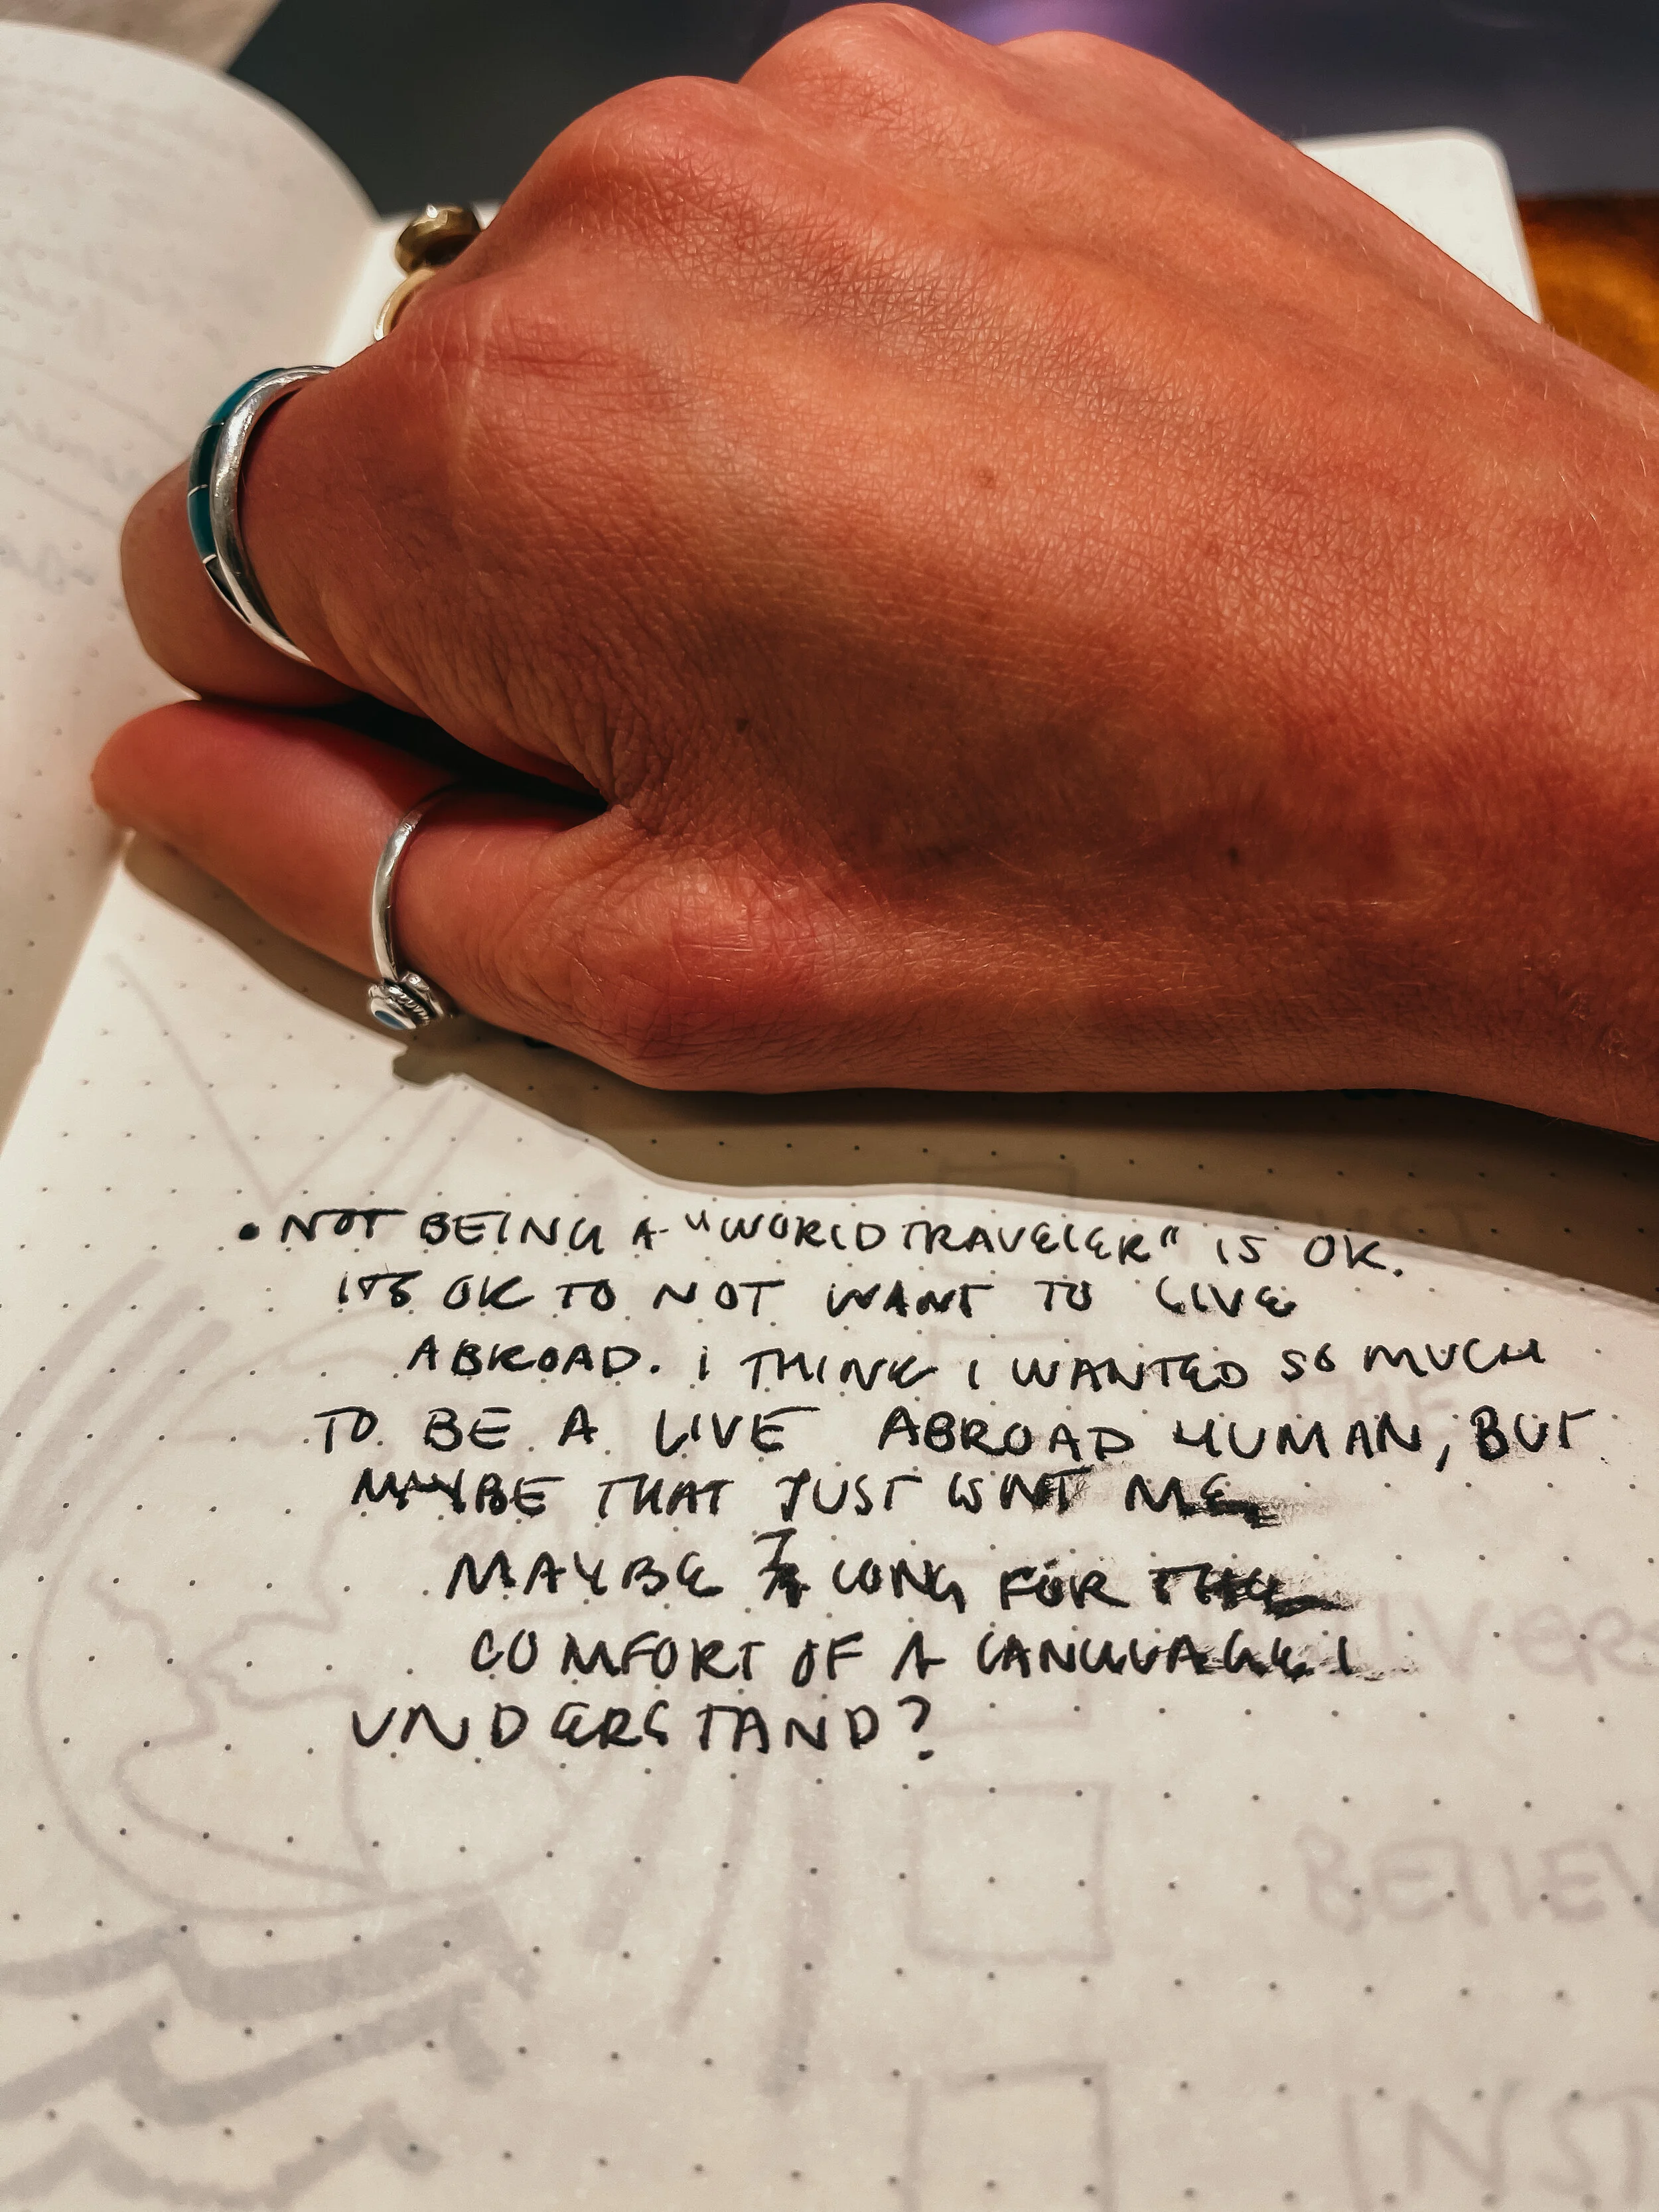 • NOT BEING A "WORLD TRAVELER" IS OK.
ITS OK TO NOT WANT TO LIVE
ABROAD. I THINK I WANTED SO MUCH
TO BE A LIVE ABROAD HUMAN, BUT
MAYBE THAT JUST ISNT ME,
MAYBE I LONG FOR THE
COMFORT OF A LANGUAGE I
UNDERSTAND?